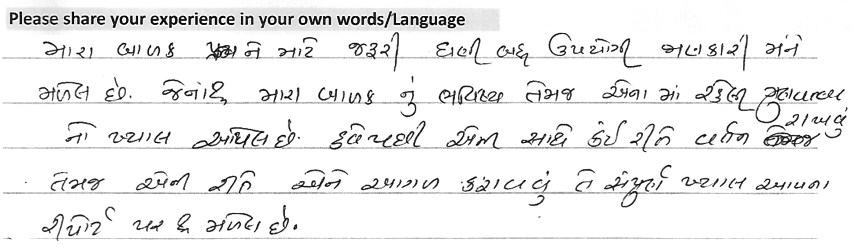 Please share your experience in your own words/Language
મારા બાળક ને માટે જરૂરી ઘણી બધુ ઉપયોગી જાણકારી મને
મળેલ છે. જેનાથી મારા બાળક નું ભવિષ્ય તેમજ એના માં રહેલી
રાખવું
નો ખ્યાલ આવેલ છે. હવે પછી એની સાથે કેઈ રીતે વર્તન
તેમજ એની રીતે એને આગળ કરાવવું તે સંપુર્ણ ખ્યાલ આપના
રીપોર્ટ પર થી મળેલ છે.